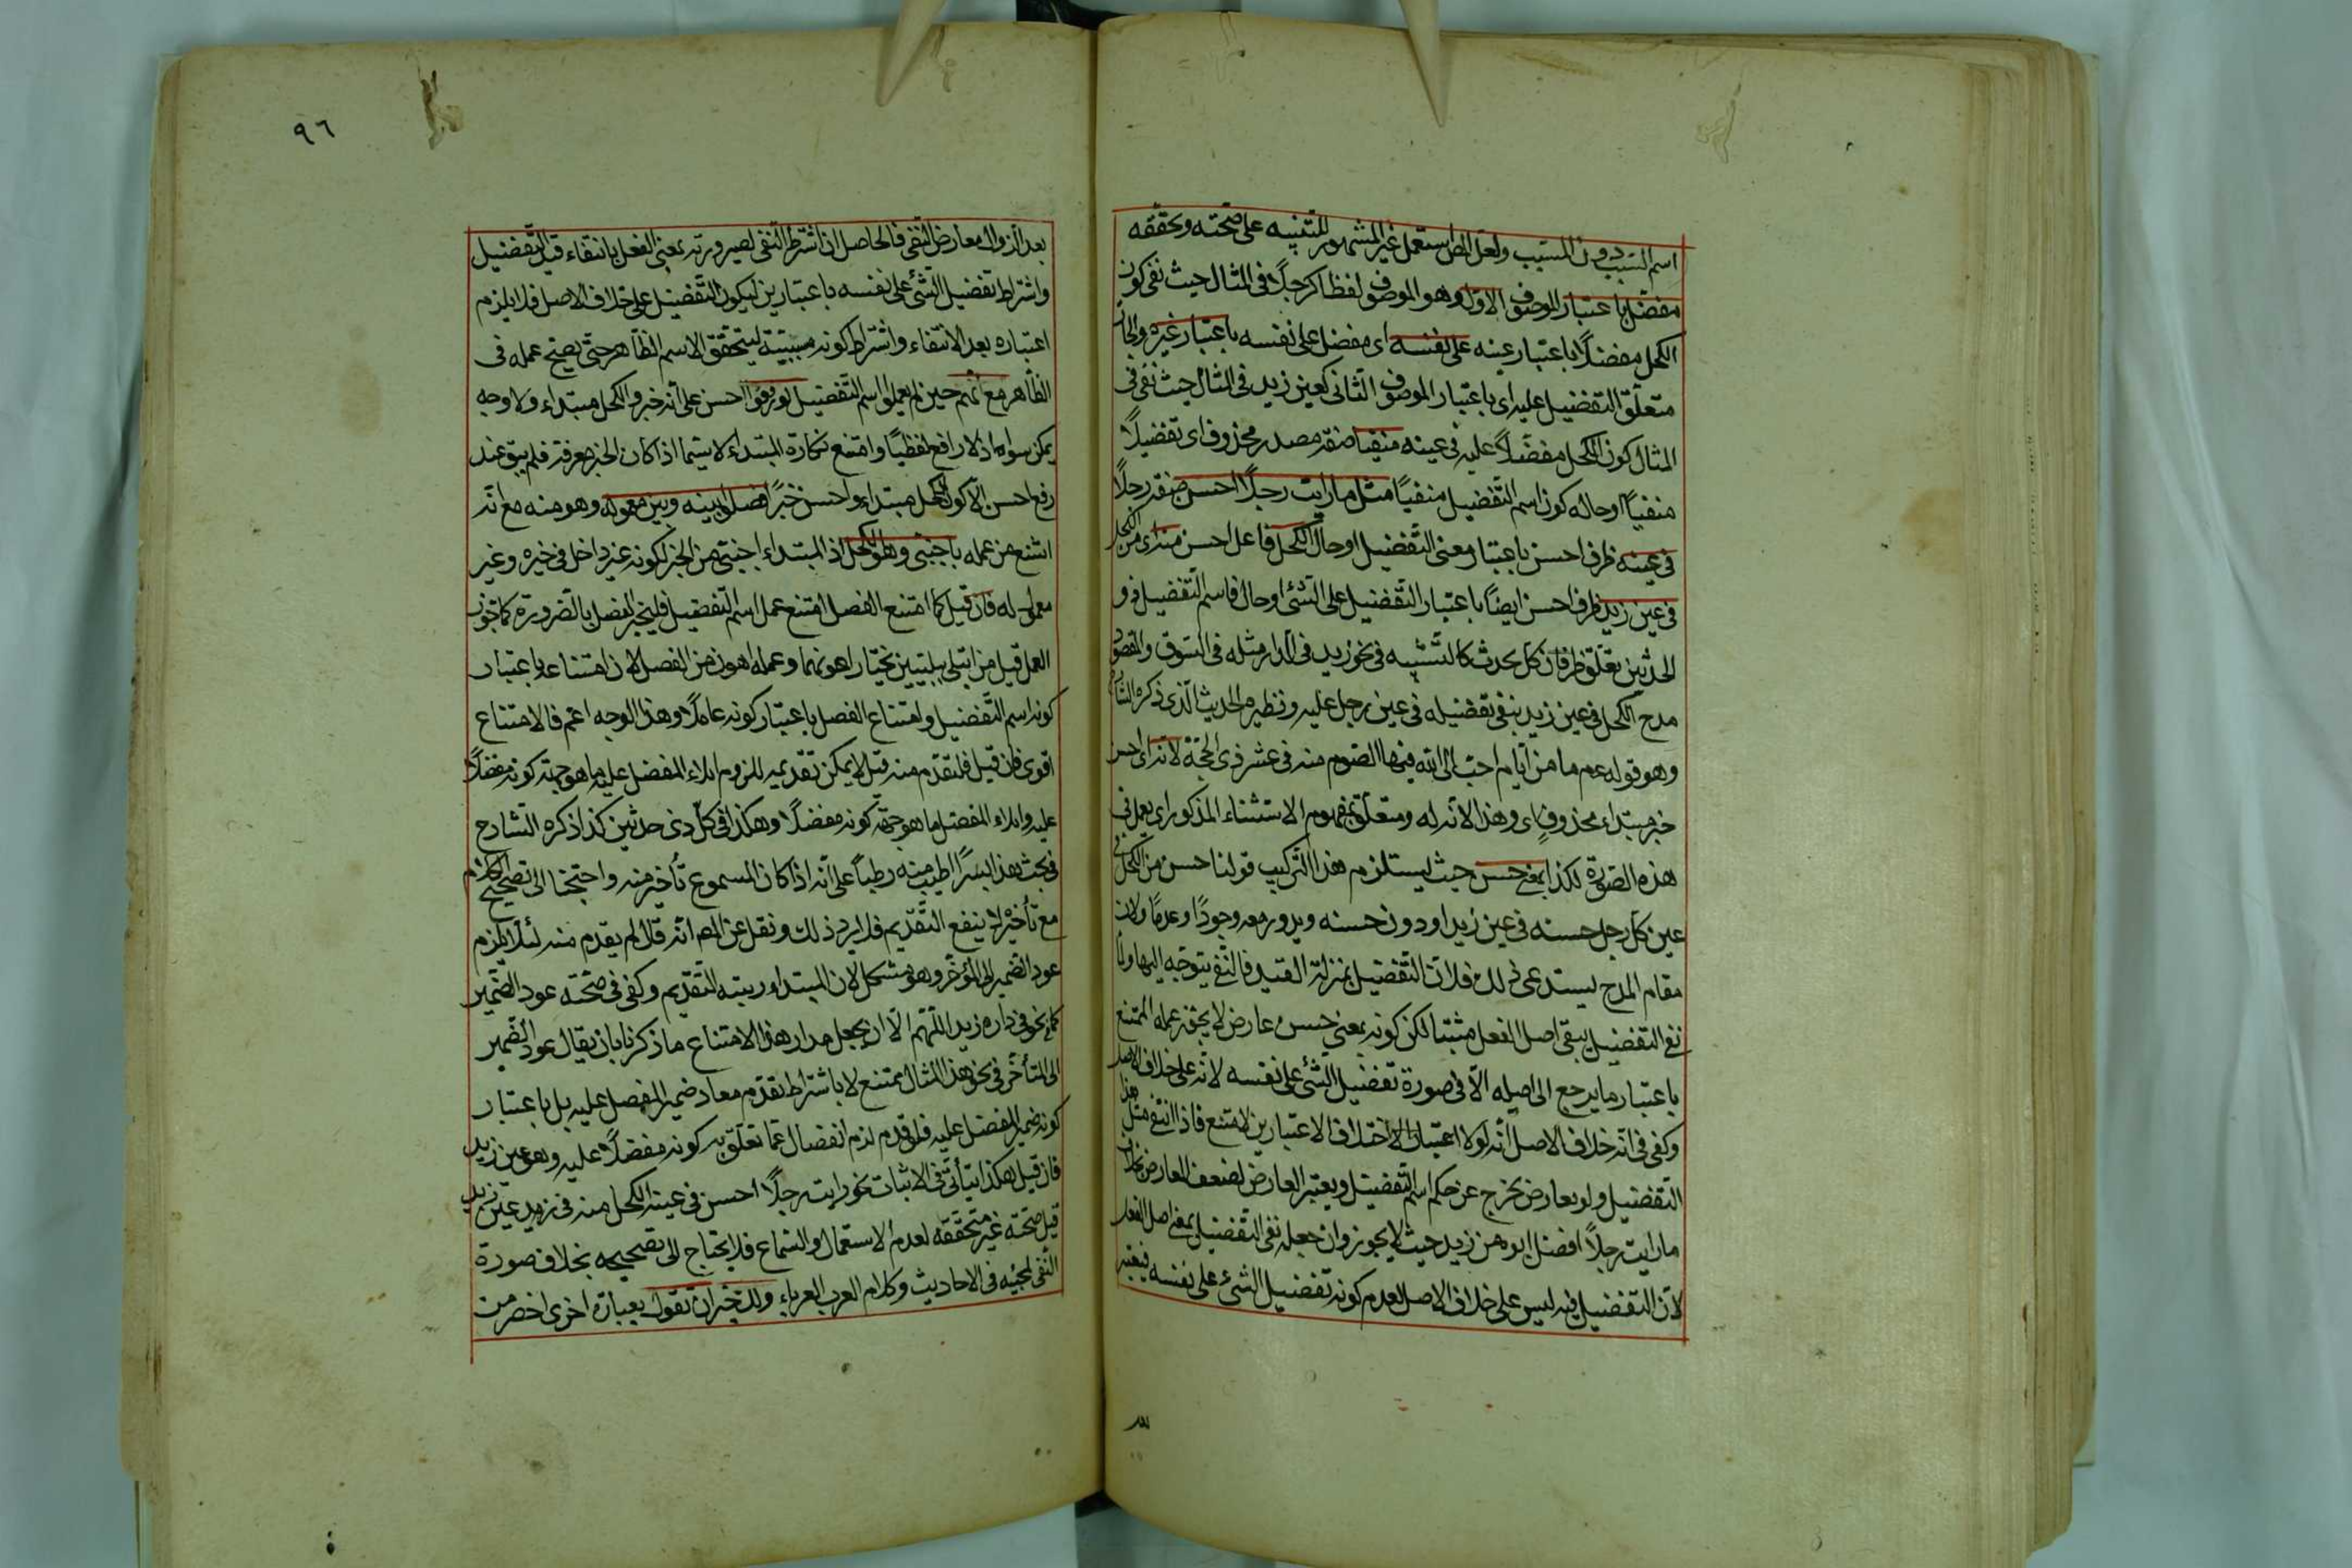 اسم السبب دون المسبب ولعل المص استعمل غير المشهور للتنبيه على صحته وتحققه
مفضل باعتبار الموصوف الاول وهو الموصوف لفظا كرجلا فى المثال حيث نفى كون
الكحل مفضلا باعتبار عينه على نفسه اى مفضل على نفسه باعتبار غيره والجار
متعلق التفضيل عليه اى باعتبار الموصوف الثانى كعين زيد فى المثال حيث نفى فى
المثال كون الكحل مفضلا عليه فى عينه منفيا صفة مصدر محذوف اى تفضيلا
منفيا او حاله كون اسم التفضيل منفيا مثل ما رايت رجلا احسن صفة رجلا
فى عينه ظرف احسن باعتبار معنى التفضيل او حال الكحل فاعل احسن منه اى من الكحل
فى عين زيد ظرف احسن ايضا باعتبار التفضيل على الشئ او حال فاسم التفضيل ذو
الحدثين يتعلق ظرفان كل بحدث كالتشبيه فى نحو زيد فى الدار مثله فى السوق والمقصود
مدح الكحل فى عين زيد بنفى تفضيله فى عين رجل عليه ونظيره الحديث الذى ذكره الشارح
وهو قوله عم ما من ايام احب الى الله فيها الصوم منه فى عشر ذى الحجة لانه اى احسن
خبر مبتداء محذوف اى وهذا لانه له ومتعلق بمفهوم الاستثناء المذكور اى يعمل فى
هذه الصورة لكذا بمعنى حسن حيث يستلزم هذا التركيب قولنا حسن من الكحل فى
عين كل رجل حسنه فى عين زيد او دون حسنه ويدور معه وجودا وعدما ولان
مقام المدح يستدعى ذلك فلان التفضيل بمنزلة القيد فالنفى يتوجه اليها ولما
نفى التفضيل يبقى اصل الفعل مثبتا لكن كونه بمعنى حسن عارض لا يحقق عمله الممتنع
باعتبار ما يرجع الى اصله الا فى صورة تفضيل الشئ على نفسه لانه على خلاف الاصل
وكفى فى انه خلاف الاصل انه لولا اعتبار الاختلاف الاعتبارين لامتنع فاذا انتفى مثل هذا
التفضيل ولو بعارض يخرج عن حكم اسم التفضيل ويعتبر العارض لضعف المعارض بخلاف
ما رايت رجلا افضل ابوه من زيد حيث لا يجوز وان جعله نفى التفضيل بمعنى اصل الفعل
لان التفضيل فيه ليس على خلاف الاصل لعدم كونه تفضيل الشئ على نفسه فيعتبر
٩٦
بعد الزوال معارض النفى فالحاصل ان اشتراط النفى لصيرورته بمعنى الفعل بانتفاء قيد التفضيل
واشتراط تفضيل الشئ على نفسه باعتبارين ليكون التفضيل على خلاف الاصل فلا يلزم
اعتباره بعد الانتفاء واشتراط كونه مسببية ليتحقق الاسم الظاهر حتى يصح عمله فى
الظاهر مع انهم حين لم يعملوا اسم التفضيل لو رفعوا احسن على انه خبر والكحل مبتداء ولا وجه
يمكن سواه اذ لا رافع لفظيا وامتنع نكارة المبتداء لا سيما اذا كان الخبر معرفة فلم يبق عند
رفع احسن الا كون الكحل مبتداء واحسن خبرا فصلوا بينه وبين معموله وهو منه مع انه
امتنع من عمله باجنبى وهو الكحل اذ المبتداء اجنبى من الخبر لكونه غير داخل فى خبره وغير
معمول له فان قيل كما امتنع الفصل امتنع عمل اسم التفضيل فليجز الفصل بالضرورة كما تجوز
العمل قيل من ابتلى ببليتين يختار اهونهما وعمله اهون من الفصل لان امتناع عمله باعتبار
كونه اسم التفضيل وامتناع الفصل باعتبار كونه عاملا وهذا الوجه اعم فالامتناع
اقوى فان قيل فلتقدم منه قيل لا يمكن تقديمه للزوم ايلاء المفضل عليه ما هو جهة كونه مفضلا
عليه وايلاء المفضل ما هو جهة كونه مفضلا وهكذا فى كل ذى حدثين كذا ذكره الشارح
فى بحث هذا بسرا اطيب منه رطبا على انه اذا كان المسموع تأخير منه واحتجنا الى تصحيح الكلام
مع تأخيره لا ينفع التقديم فلا يرد ذلك ونقل عن المص انه قال لم يقدم منه لئلا يلزم
عود الضمير الى المؤخر وهو مشكل لان المبتداء رتبته التقديم وكفى فى صحته عود الضمير
كما نحو فى داره زيد اللهم الا ان يجعل مدار هذا الامتناع ما ذكرنا بان يقال عود الضمير
الى المتأخر فى نحو هذا المثال ممتنع لا باشتراط تقدم معاد ضمير المفضل عليه بل باعتبار
كونه ضمير المفضل عليه فلو قدم لزم انفصال عما تعلق به كونه مفضلا عليه وهو عين زيد
فان قيل هكذا يتأتى فى الاثبات نحو رايت رجلا احسن فى عينه الكحل منه فى زيد عين زيد
قيل صحته غير متحققه لعدم الاستعمال والسماع فلا يحتاج الى تصحيحه بخلاف صورة
النفى لمجيئه فى الاحاديث وكلام العرب العرباء ولك خبر ان تقول بعبارة اخرى اخصر من